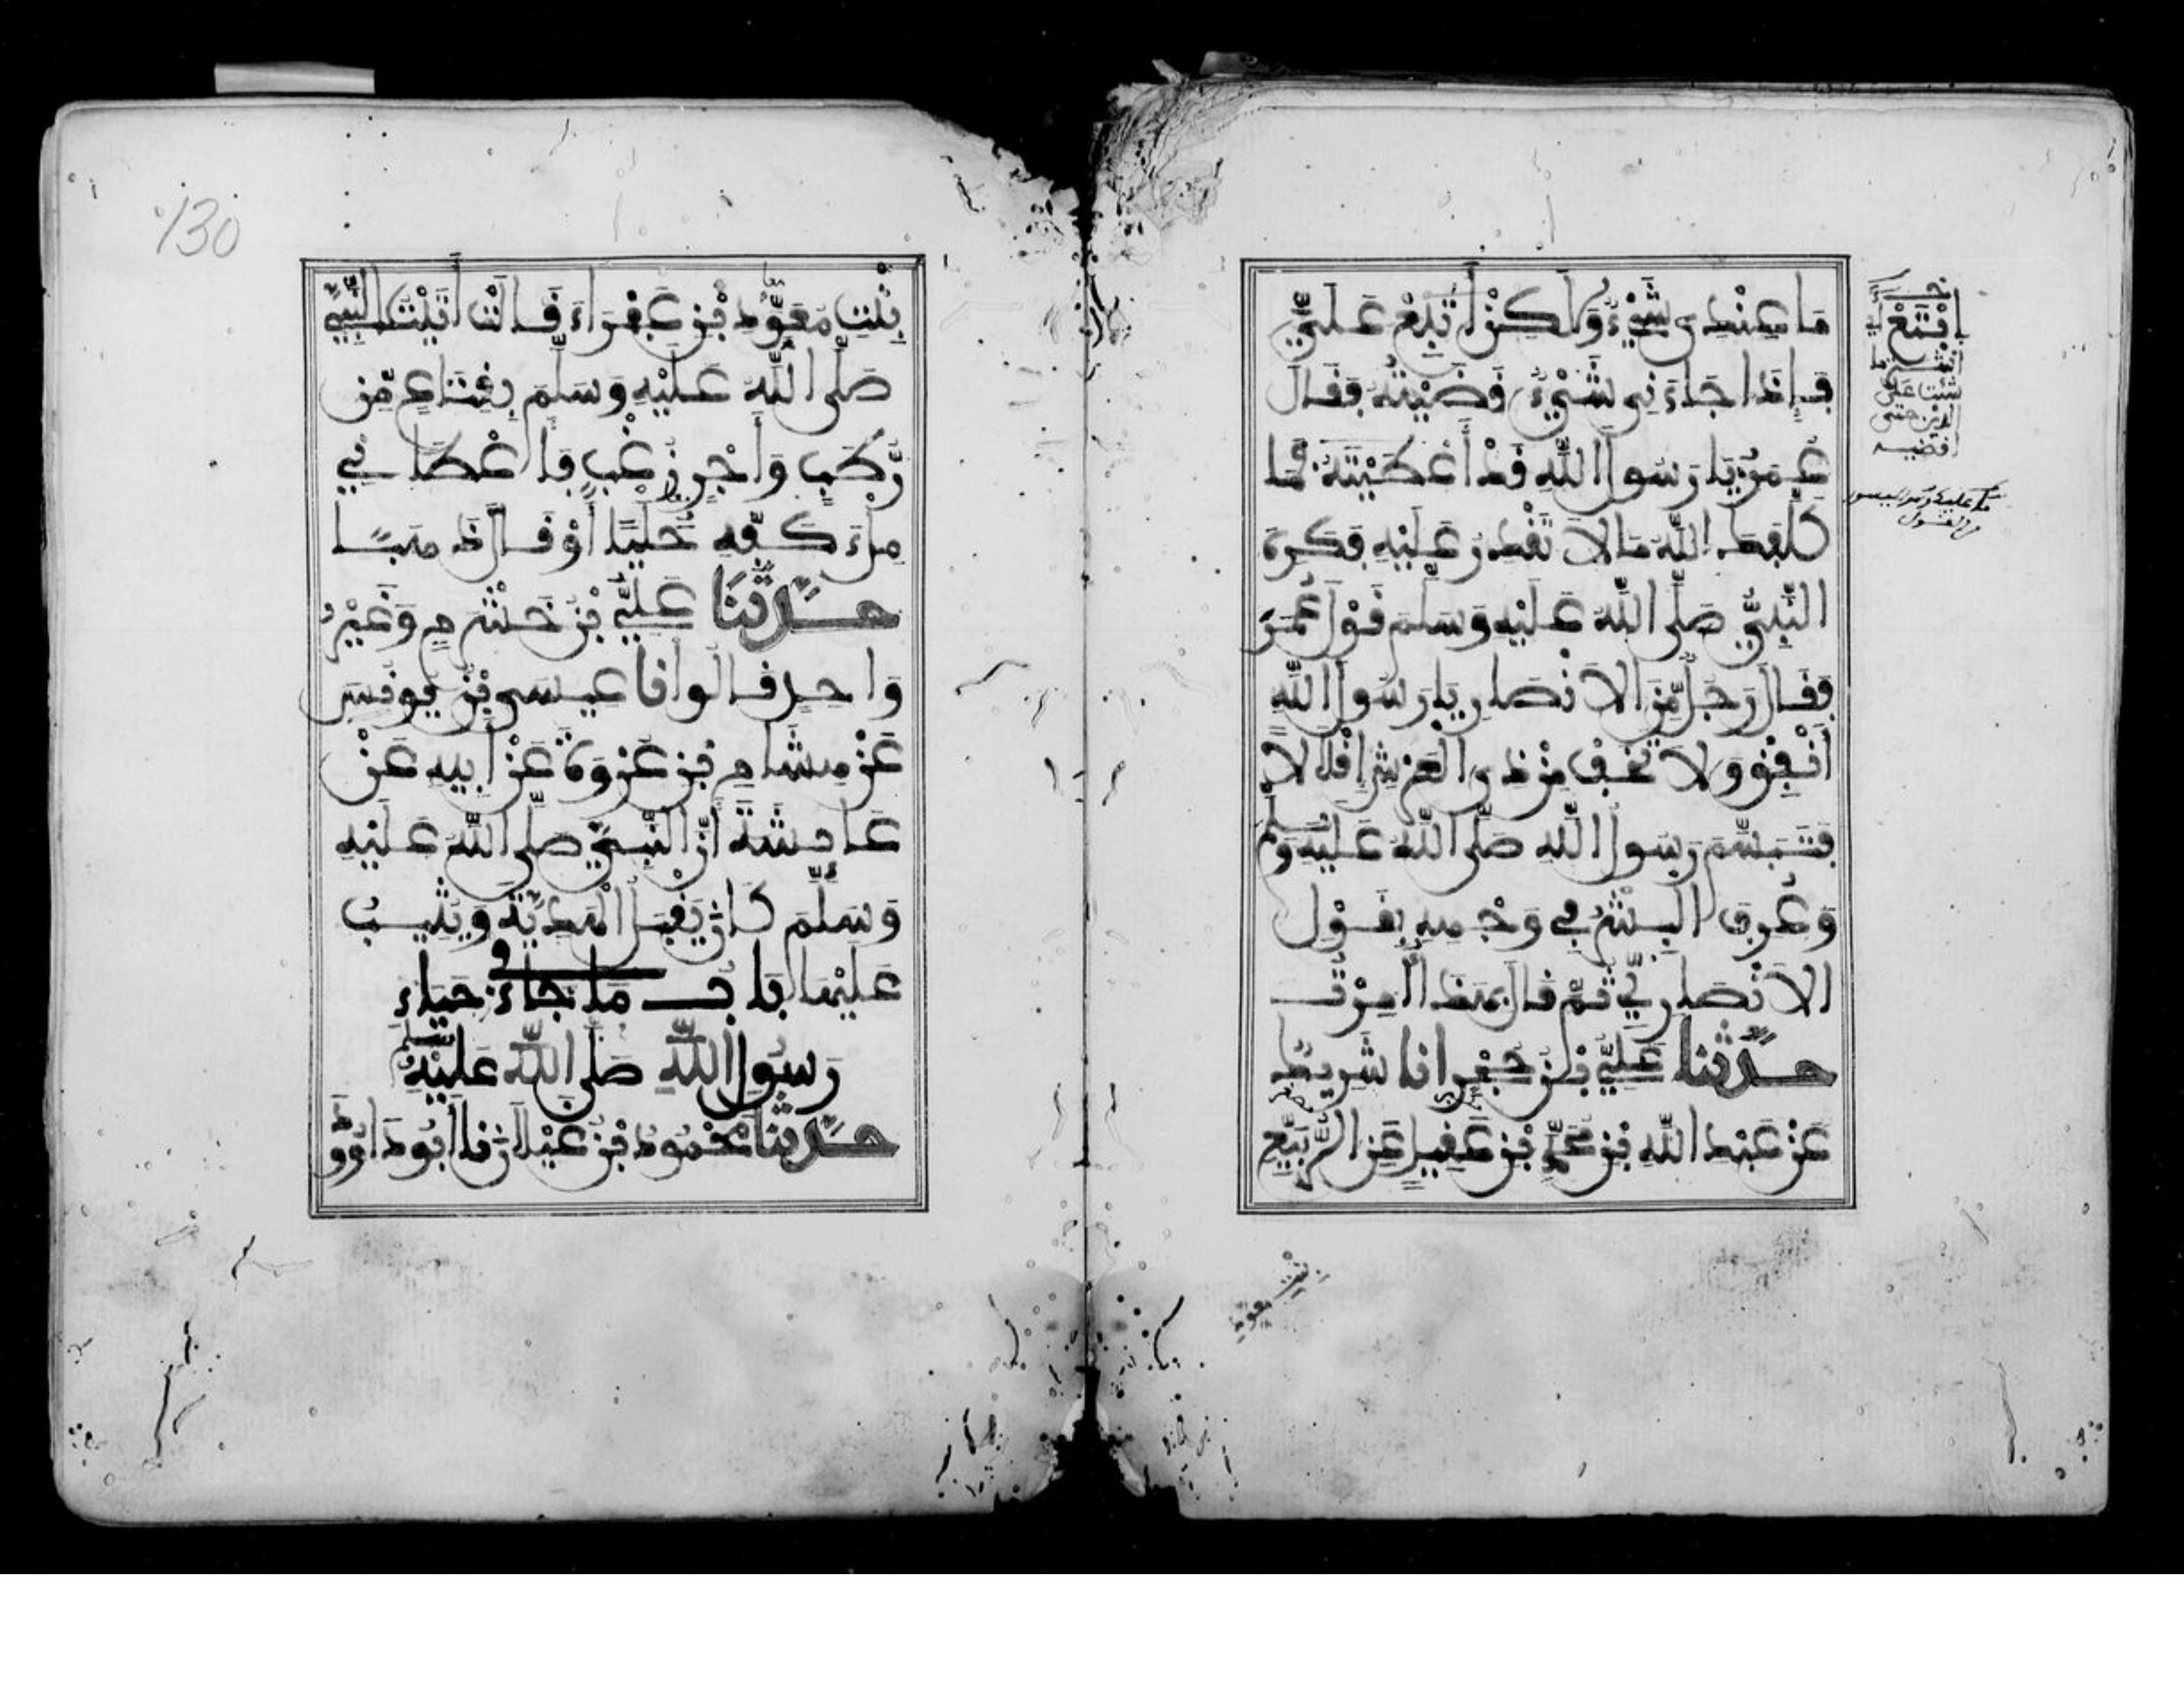 مَا عِنْدِي شَيْءٌ وَلَكِنْ اتْبَعْ عَلَيَّ
فَإِذَا جَاءَنِي شَيْءٌ قَضَيْتُهُ فَقَالَ
عُمَرُ يَا رَسُولَ اللَّهِ قَدْ أَعْطَيْتَهُ فَمَا
كَلَّفَكَ اللَّهُ مَا لَا تَقْدِرُ عَلَيْهِ فَكَرِهَ
النَّبِيُّ صَلَّى اللَّهُ عَلَيْهِ وَسَلَّمَ قَوْلَ عُمَرَ
فَقَالَ رَجُلٌ مِّنَ الْأَنْصَارِ يَا رَسُولَ اللَّهِ
أَنْفِقْ وَلَا تَخَفْ مِنْ ذِي الْعَرْشِ إِقْلَالًا
فَتَبَسَّمَ رَسُولُ اللَّهِ صَلَّى اللَّهُ عَلَيْهِ وَسَلَّمَ
وَعُرِفَ الْبِشْرُ فِي وَجْهِهِ بِقَوْلِ
الْأَنْصَارِيِّ ثُمَّ قَالَ بِهَذَا أُمِرْتُ
حَدَّثَنَا عَلِيُّ بْنُ حُجْرٍ انا شَرِيكٌ
عَنْ عَبْدِ اللَّهِ بْنِ مُحَمَّدِ بْنِ عَقِيلٍ عَنِ الرُّبَيِّعِ
ابْتَعْ
شئت على
الدين حتى
اقضيه
بنت معوذ
130
بِنْتِ مُعَوِّذِ بْنِ عَفْرَاءَ قَالَتْ أَتَيْتُ النَّبِيَّ
صَلَّى اللَّهُ عَلَيْهِ وَسَلَّمَ بِقِنَاعٍ مِّنْ
رُّطَبٍ وَأَجْرٍ زُغْبٍ فَأَعْطَانِي
مِلْءَ كَفِّهِ حُلِيًّا أَوْ قَالَ ذَهَبًا
حَدَّثَنَا عَلِيُّ بْنُ خَشْرَمٍ وَغَيْرُ
وَاحِدٍ قَالُوا أنا عِيسَى بْنُ يُونُسَ
عَنْ هِشَامِ بْنِ عُرْوَةَ عَنْ أَبِيهِ عَنْ
عَائِشَةَ أَنَّ النَّبِيَّ صَلَّى اللَّهُ عَلَيْهِ
وَسَلَّمَ كَانَ يَقْبَلُ الْهَدِيَّةَ وَيُثِيبُ
عَلَيْهَا بَابُ مَا جَاءَ فِي حَيَاءِ
رَسُولِ اللَّهِ صَلَّى اللَّهُ عَلَيْهِ وَسَلَّمَ
حَدَّثَنَا مَحْمُودُ بْنُ غَيْلَانَ نا أَبُو دَاوُودَ